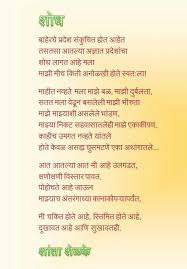 शोध
बाहेरचे प्रदेश संकुचित होत आहेत
तसतसा आतल्या अज्ञात प्रदेशांचा
शोध लागत आहे मला
माझी मीच किती अनोळखी होते स्वतःला!
माहीत नव्हते मला माझे बळ, माझी दुर्बलता,
सतत मला वेढून बसलेली माझी भीरुता
माझे माझ्याशी असलेले भांडण,
माझ्या निकट सहवासातलेही माझे एकाकीपण,
काहीच उमगत नव्हते यांतले
होते केवळ असह्य घुसमटणे एका अथांगातले...
आत आतल्या आत मी आहे उलगडत,
क्षणोक्षणी विस्तार पावत,
पोहोचते आहे जाऊन
माझ्याच अंतरंगाच्या कानाकोपऱ्यापर्यंत,
मी चकित होते आहे, स्तिमित होते आहे,
दुखावत आहे आणि सुखावतही.
शांता शेळके